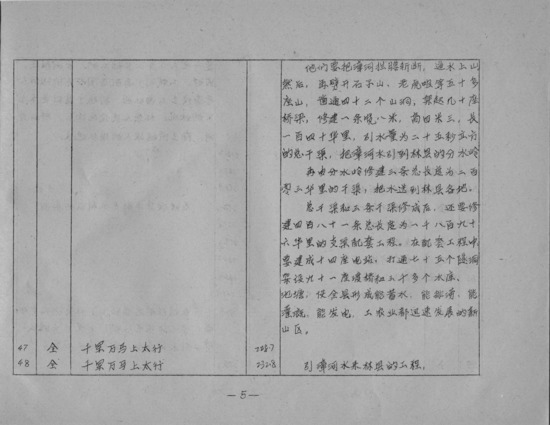 他们要把漳河拦腰斩断，逼水上山
然后，再劈开石子山，老虎咀等五十多
座山，
桥梁，修建一条宽八米，高四米三，长
一百四十华里，引水量为二十五秒立方
的总干渠，把漳河水引到林县的分水岭
再由分水岭修建三条总长度为二百
零二华里的干渠，把水送到林县各地。
总干渠和三条干渠修成后，还要修
建四百八十一条总长度为一千八百九十
六华里的支渠配套工程。在配套工程中
要建成十四座电站，打通七十五个隧洞
架设九十一座渡槽和三十多个水库、
池塘，使全县形成能蓄水，能排涝，能
灌溉，能发电，工农业都迅速发展的新
山区。
47 全 千军万马上太行
48 全 千军万马上太行 2328 引漳河水来林县的工程。
—5—